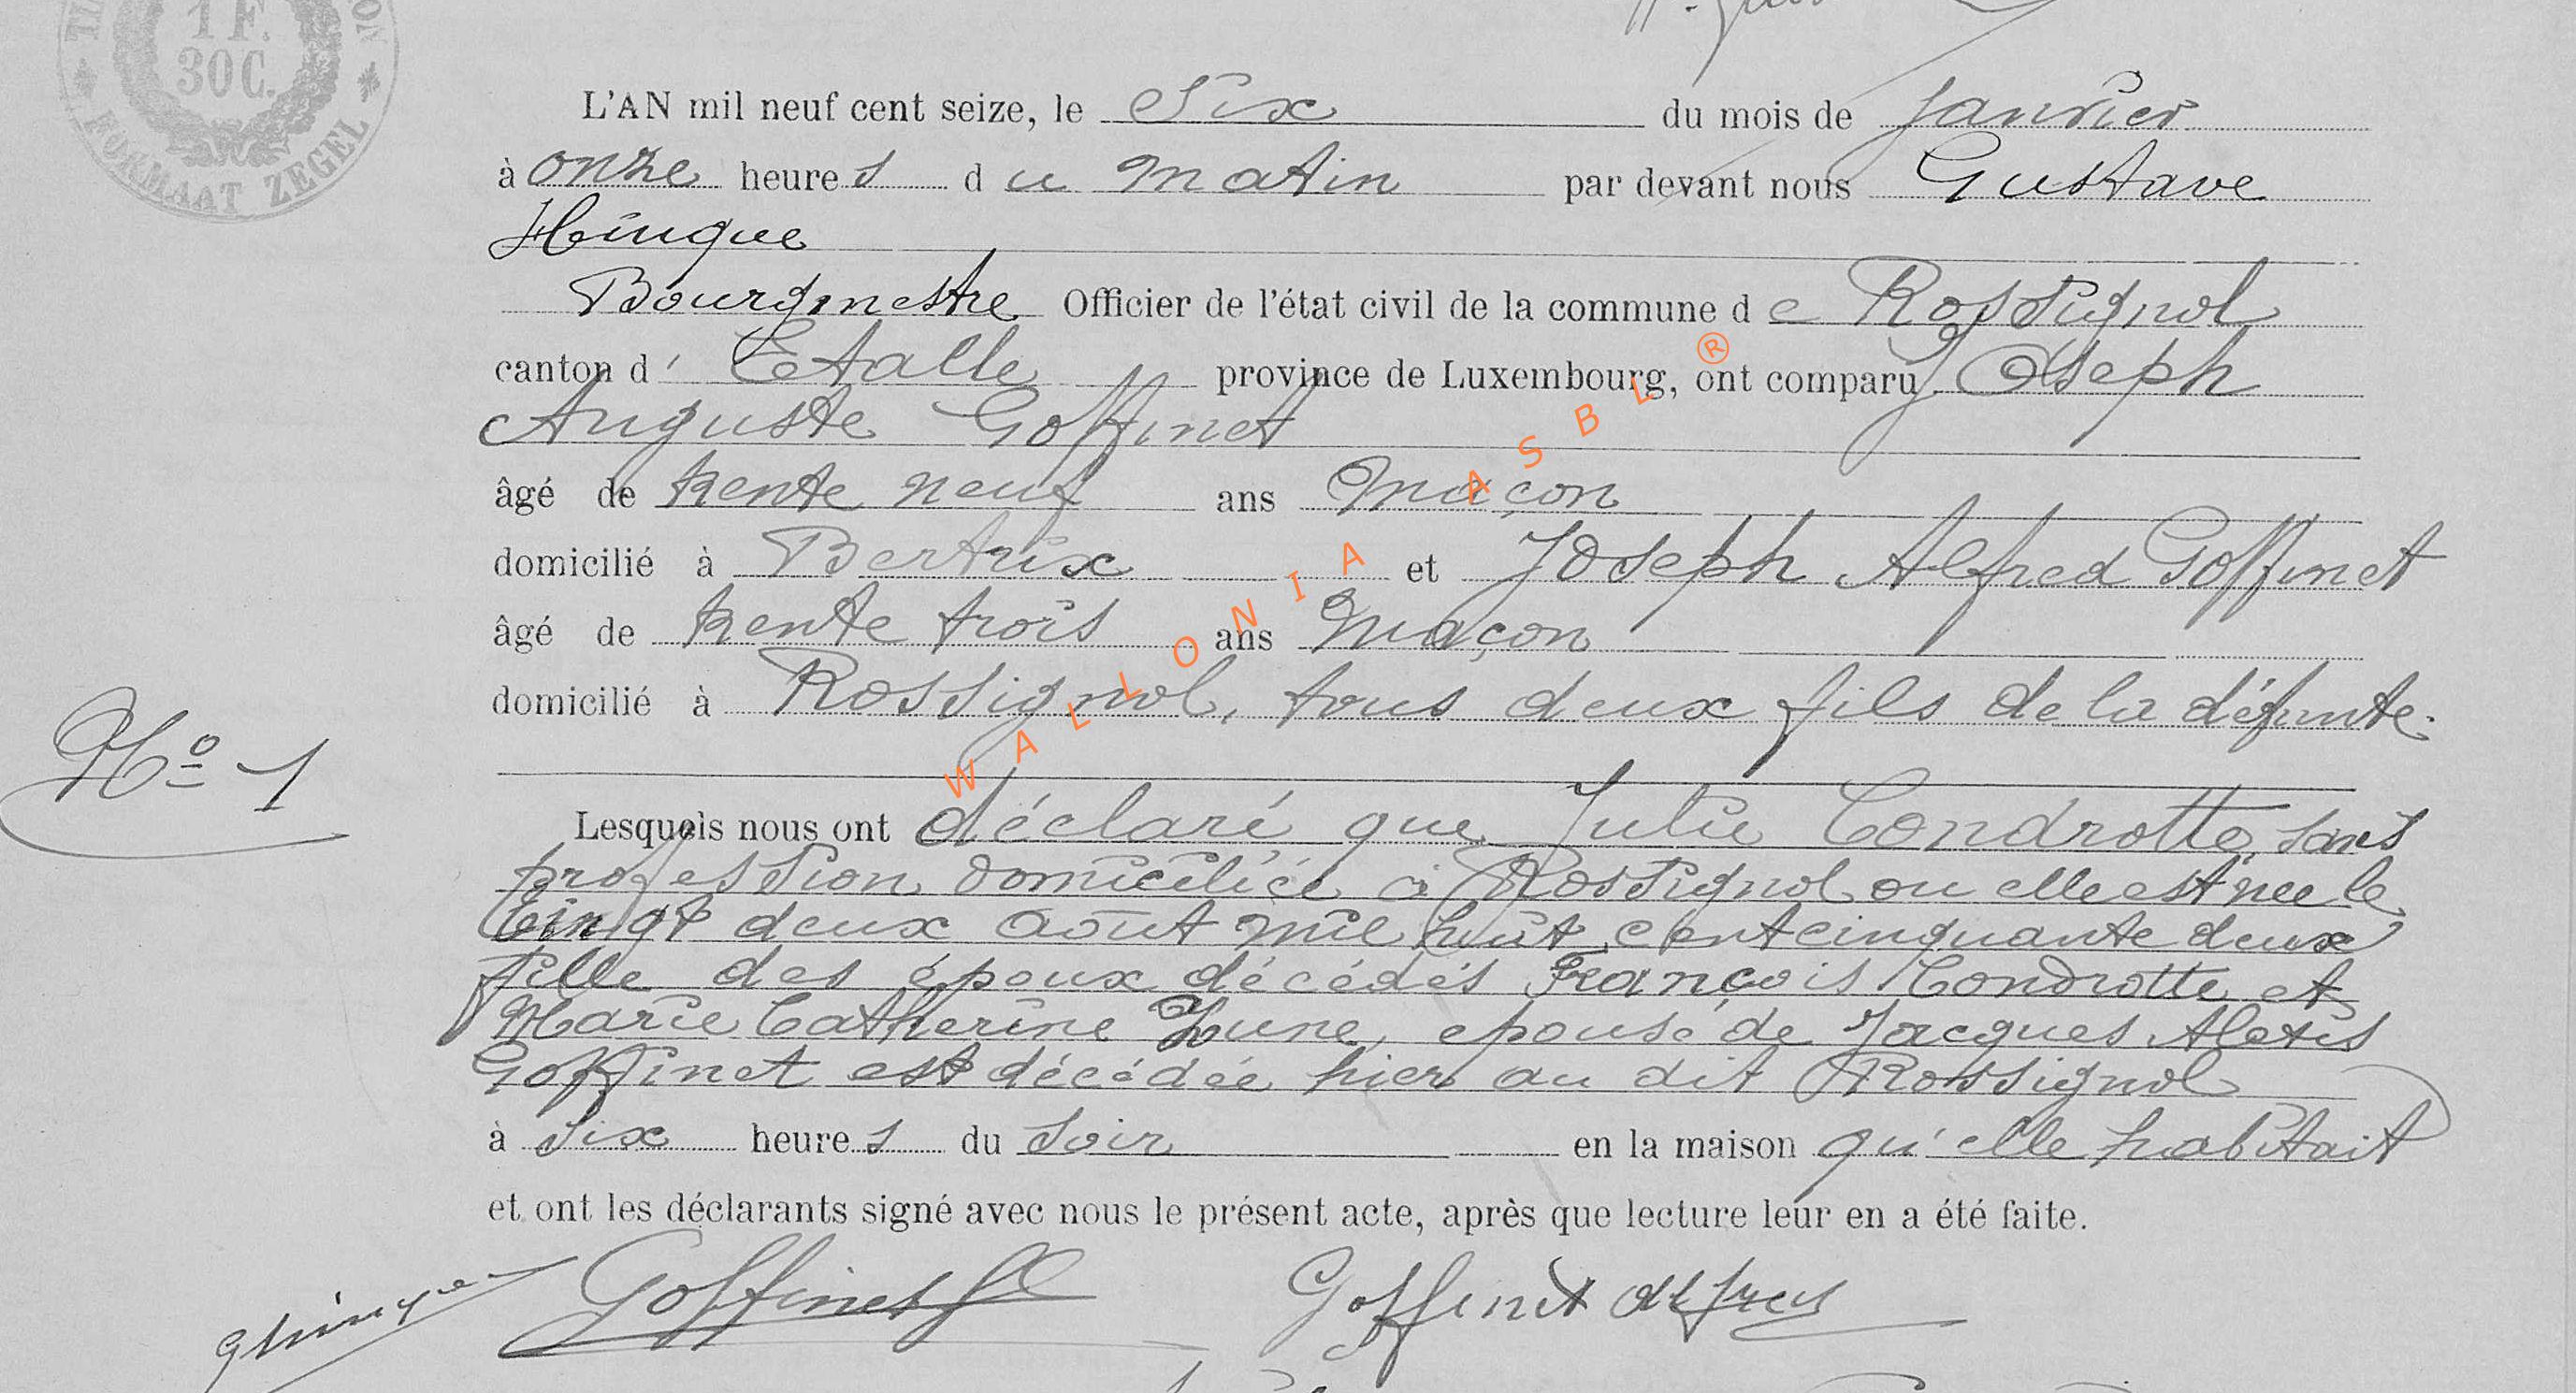 1 F.
30 C.
FORMAAT ZEGEL
L'AN mil neuf cent seize, le Six du mois de Janvier
à onze heures du matin par devant nous Gustave
Hinque
Bourgmestre Officier de l'état civil de la commune de Rossignol
canton d'Etalle province de Luxembourg, ont comparu Joseph
Auguste Goffinet
âgé de trente neuf ans Maçon
domicilié à Bertrix et Joseph Alfred Goffinet
âgé de trente trois ans Maçon
domicilié à Rossignol, tous deux fils de la défunte.
N° 1
Lesquels nous ont déclaré que Julie Condrotte, sans
profession domiciliée à Rossignol ou elle est nee le
Vingt deux août mil huit cent cinquante deux
fille des époux décédés François Condrotte et
Marie Catherine Hune, epouse de Jacques Alexis
Goffinet est décédée hier au dit Rossignol
à six heures du soir en la maison qu'elle habitait
et ont les déclarants signé avec nous le présent acte, après que lecture leur en a été faite.
GHinque Goffinet Goffinet Alfred
WALLONIA ASBL ®